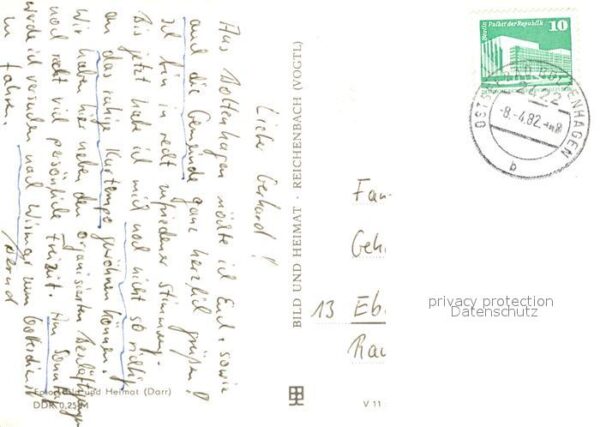 Liebe Gerhard!
Aus Boltenhagen möchte ich Euch, sowie
auch die Gemeinde ganz herzlich grüßen!
Ich bin in recht zufriedener Stimmung.
Bis jetzt habe ich mich noch nicht so richtig
an das ruhige Kurtempo gewöhnen können.
Wir haben hier neben den organisierten Beschäftigungen
noch recht viel persönliche Freizeit. Am Sonntag
werde ich versuchen nach Wismar zum Gottesdienst
zu fahren.
Bernd
Foto: Bild und Heimat (Darr)
DDR 0,25 M
BILD UND HEIMAT · REICHENBACH (VOGTL)
V 11
Berlin Palast der Republik
10
DDR
OSTSEEBAD BOLTENHAGEN
2422
-8.-4.82
b
Fam
Geh
13 Eb
Rau
privacy protection
Datenschutz